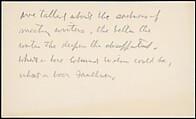 talked about the
meeting writers. the better the
writer the deeper the
What a bore Edmund Wilson could be,
what a bore Faulkner.